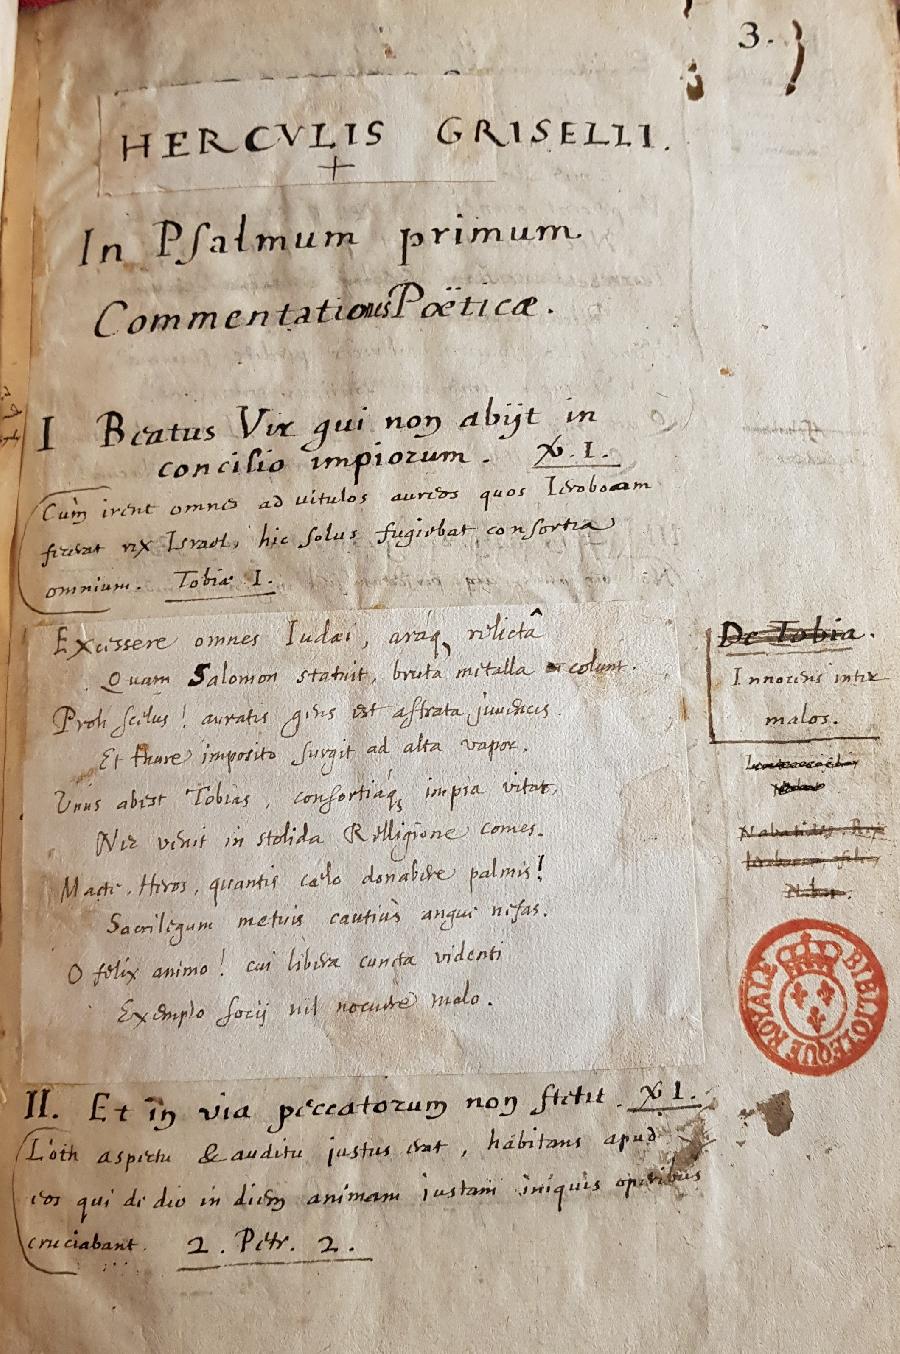 3.
HERCVLIS GRISELLI.
In Psalmum primum
Commentationes Poëticæ.
I Beatus Vir qui non abijt in
concilio impiorum. X. I.
Cum irent omnes ad vitulos aureos quos Ieroboam
fecerat rex Israel, hic solus fugiebat consortia
omnium. Tobiæ I.
Excessere omnes Iudæi, aráq; relictâ
Quam Salomon statuit, bruta metalla colunt.
Proh scelus! auratis gens est astrata juvencis
Et thure imposito surgit ad alta vapor.
Unus abest Tobias, consortiáq; impia vitat,
Nec venit in stolida Relligione comes.
Macte, Heros, quantis cælo donabere palmis!
Sacrilegum metuis cautiùs angue nefas.
O felix animo! cui libera cuncta videnti
Exemplo socij nil nocuere malo.
De Tobia.
Innocens inter
malos.
BIBLIOTEQUE ROYALE
II. Et in via peccatorum non stetit. X I.
Loth aspectu & auditu justus erat, habitans apud
eos qui de die in diem animam justam iniquis operibus
cruciabant. 2. Petr. 2.